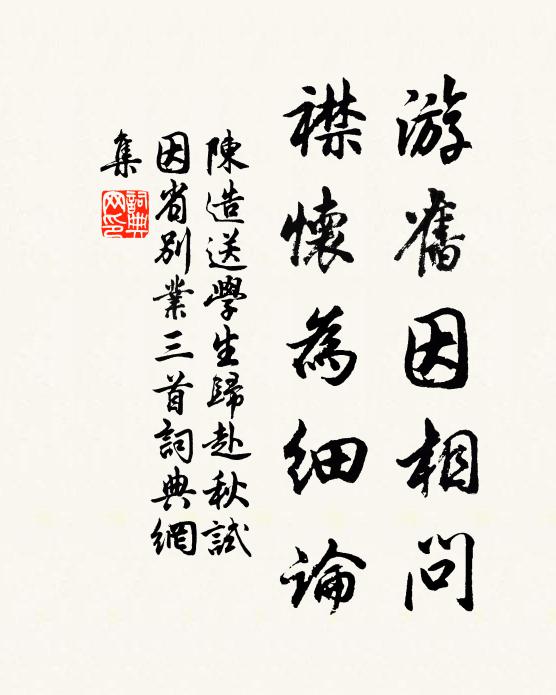 游舊因相問
襟懷為細論
陳造送學生歸赴秋試
因省別業三首詞典網
集
詞典
网印